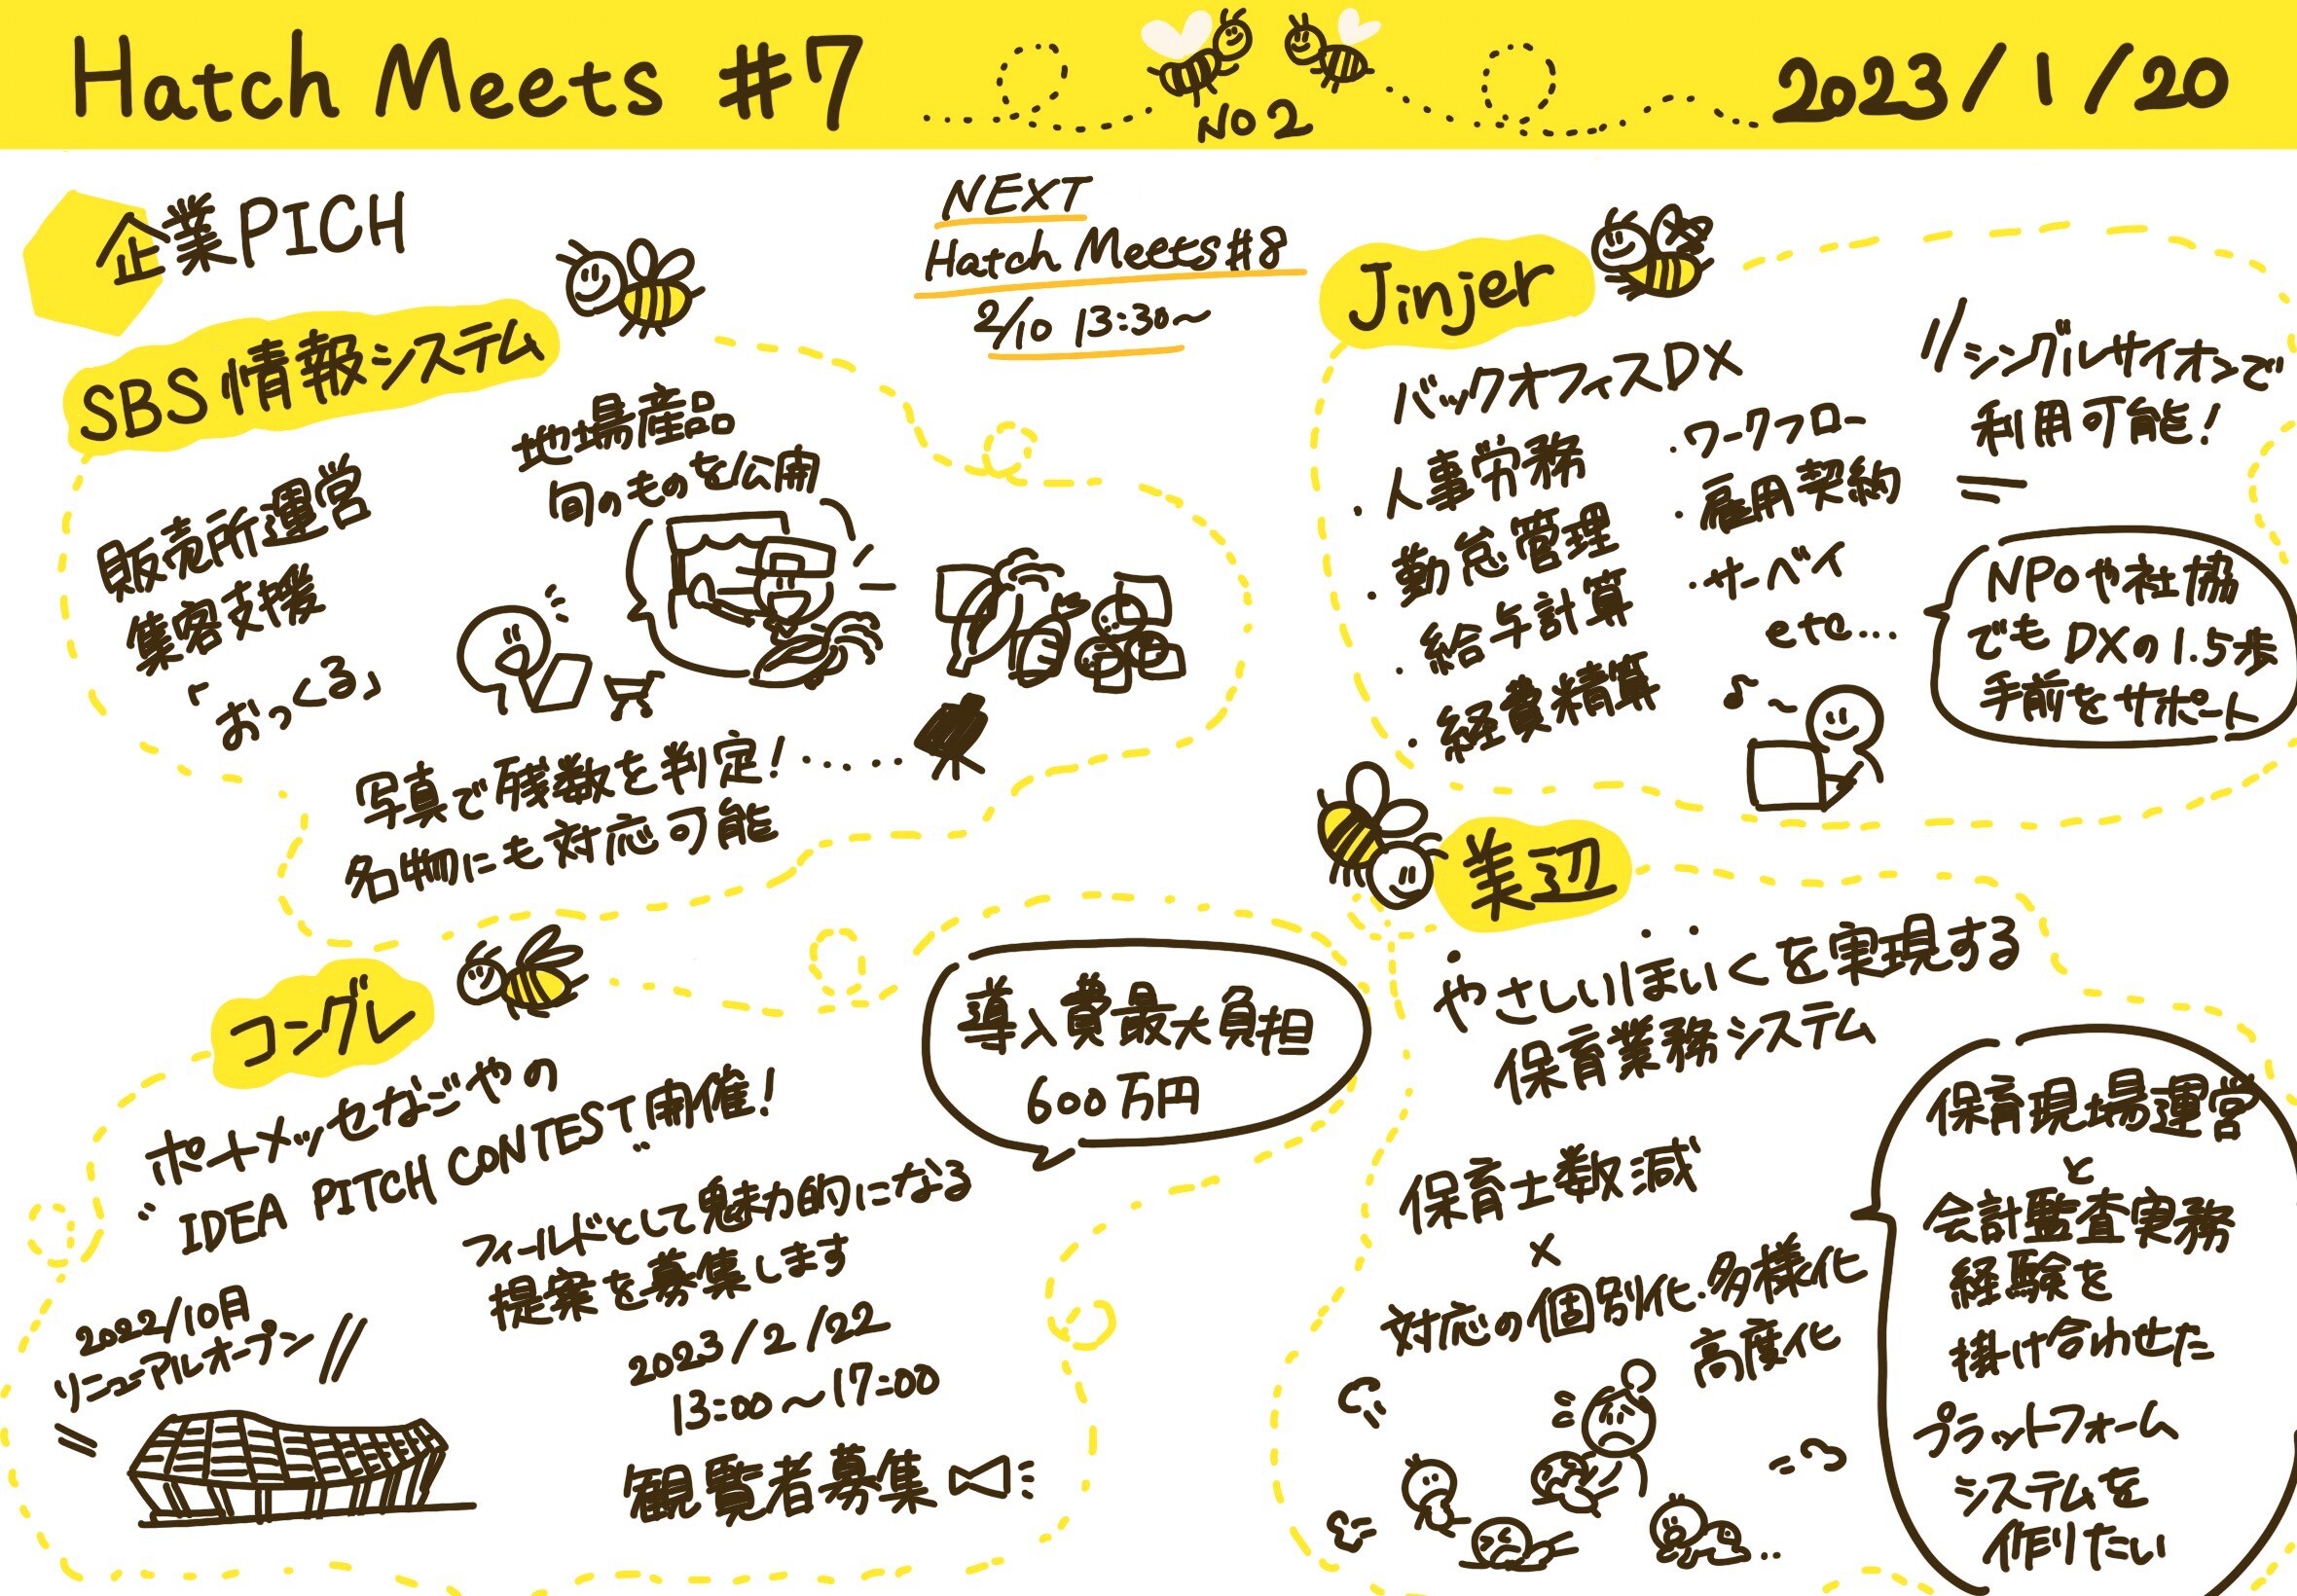 Hatch Meets #7
NO2
2023/1/20
企業PICH
NEXT
Hatch Meets#8
2/10 13:30〜
SBS情報システム
販売所運営
集客支援
「おっくる」
地場産品
旬のものを公開
写真で残数を判定!・・・・・
名物にも対応可能
Jinjer
バックオフィスDX
・人事労務
・勤怠管理
・給与計算
・経費精算
・ワークフロー
・雇用契約
・サーベイ
etc...
シングルサイオンで
利用可能!
NPOや社協
でもDXの1.5歩
手前をサポート
コングレ
ポートメッセなごやの
"IDEA PITCH CONTEST"開催!
導入費最大負担
600万円
フィールドとして魅力的になる
提案を募集します
2022/10月
リニューアルオープン
2023/2/22
13:00〜17:00
観覧者募集
美辺
やさしいほいくを実現する
保育業務システム
保育士数減
×
対応の個別化・多様化
高度化
保育現場運営
と
会計監査実務
経験を
掛け合わせた
プラットフォーム
システムを
作りたい